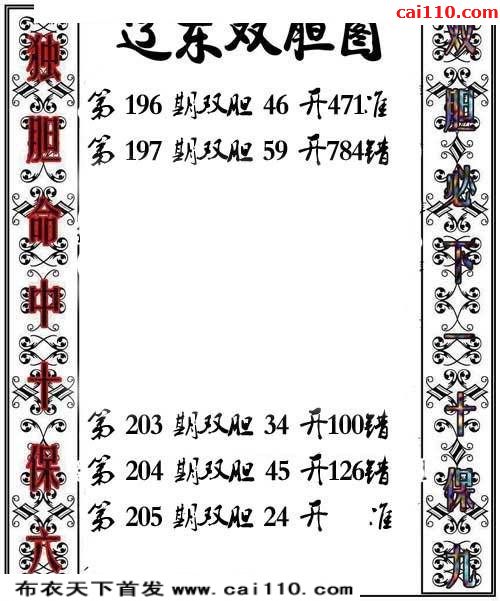 cai110.com
辽东双胆图
独胆命中十保六
第 196 期双胆 46 开471准
第 197 期双胆 59 开784错
第 203 期双胆 34 开100错
第 204 期双胆 45 开126错
第 205 期双胆 24 开 准
双胆必下一十保九
布衣天下首发 www.cai110.com